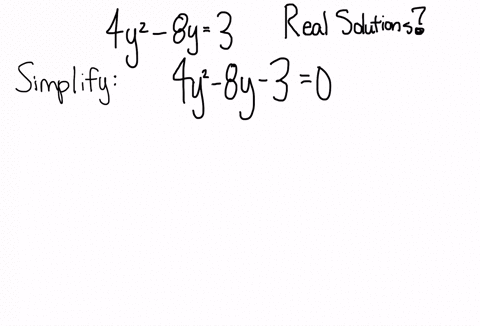 4y² - 8y = 3 Real Solutions?
Simplify: 4y² - 8y - 3 = 0